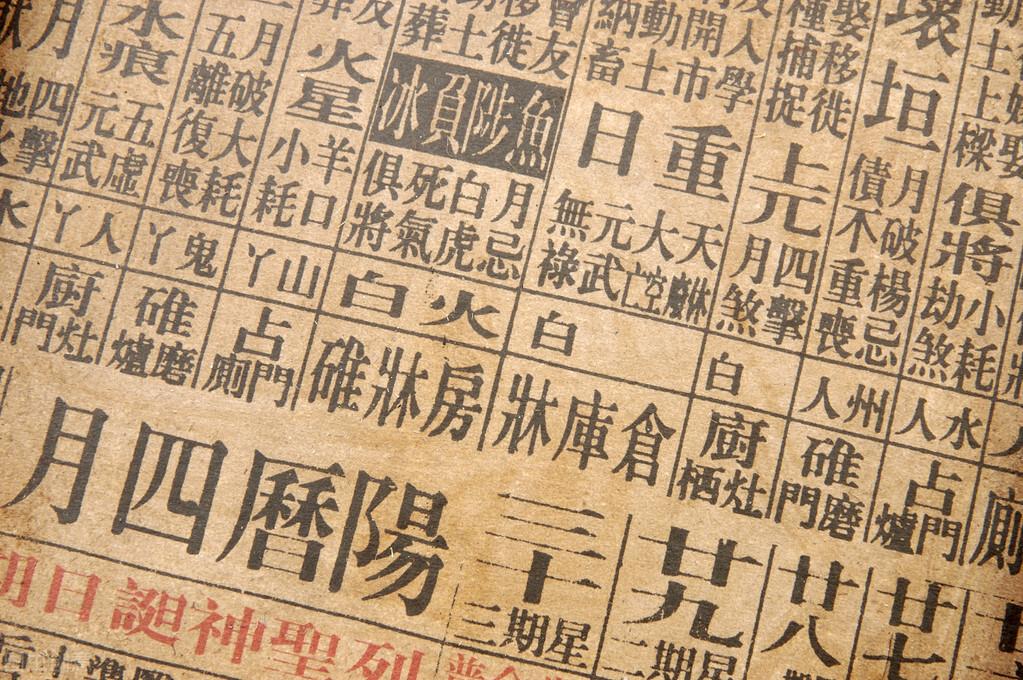 動土上樑
嫁娶
俱將
小耗
劫煞
水人
占門爐
廿七
壞垣
月破楊忌
債不重喪
州人
碓磨門
廿八
娶移徙
種捕捉
上兀
四擊
月煞
白
廚灶栖
廿九
星期二
人學
開市
動土
納畜
重日
天
大空亡
元武
無祿
白
倉庫牀
三十
星期三
會友
移徙
動土
葬
魚陟負冰
月忌
白虎
死氣
俱將
火白
房牀碓
友
火星
羊口
小耗
山丫
占門廁
月破大耗
五離復喪
鬼丫
碓磨爐
水痕
五虛
元武
人丫
廚灶門
月
四擊
陽曆四月
列聖神誕日期